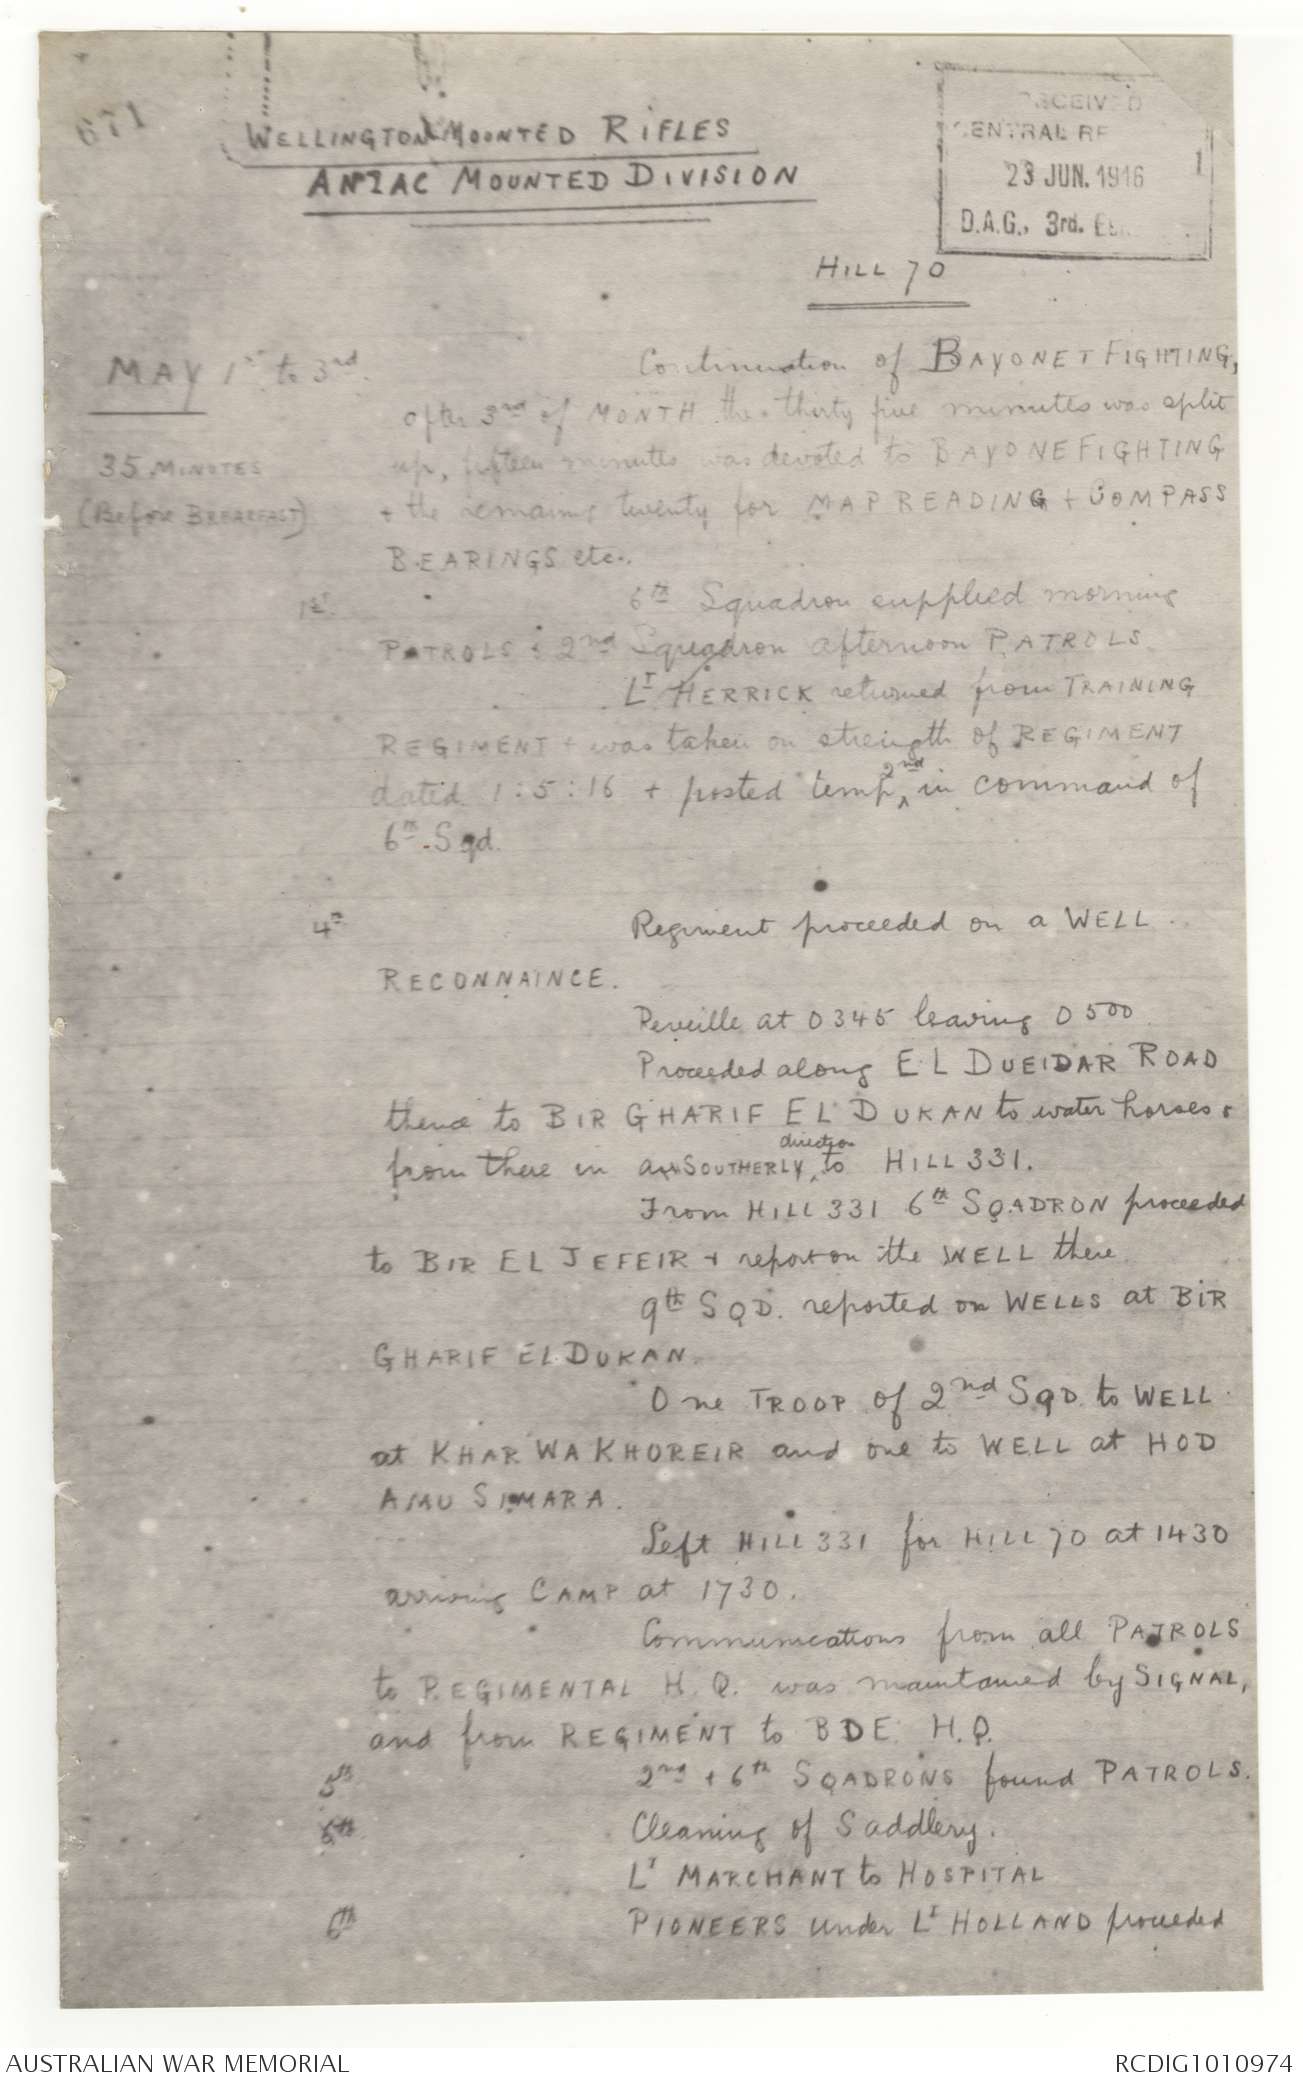 671
WELLINGTON MOUNTED RIFLES
ANZAC MOUNTED DIVISION
RECEIVED
CENTRAL RE
23 JUN. 1916
D.A.G., 3rd.
1
HILL 70
MAY 1st to 3rd.
Continuation of BAYONET FIGHTING,
after 3rd of MONTH the thirty five minutes was split
35 MINUTES
up, fifteen minutes was devoted to BAYONEFIGHTING
(Before BREAKFAST)
+ the remaing twenty for MAP READING + COMPASS
BEARINGS etc.
1st.
6th Squadron supplied morning
PATROLS : 2nd Squadron afternoon PATROLS.
LT HERRICK returned from TRAINING
REGIMENT + was taken on strength of REGIMENT
dated 1:5:16 + posted temp 2nd in command of
6th Sqd.
4th
Regiment proceeded on a WELL
RECONNAINCE.
Reveille at 0345 leaving 0500
Proceeded along EL DUEIDAR ROAD
thence to BIR GHARIF EL DUKAN to water horses &
from there in a SOUTHERLY direction to HILL 331.
From HILL 331 6th SQADRON proceeded
to BIR EL JEFEIR + report on the WELL there.
9th SQD. reported on WELLS at BIR
GHARIF EL DUKAN.
One TROOP of 2nd SQD. to WELL
at KHAR WA KHUREIR and one to WELL at HOD
AMU SIMARA.
Left HILL 331 for HILL 70 at 1430
arriving CAMP at 1730.
Communications from all PATROLS
to REGIMENTAL H.Q. was maintained by SIGNAL,
and from REGIMENT to BDE H.Q.
5th
2nd + 6th SQADRONS found PATROLS.
Cleaning of Saddlery.
LT MARCHANT to HOSPITAL
6th
PIONEERS under LT HOLLAND proceeded
AUSTRALIAN WAR MEMORIAL
RCDIG1010974